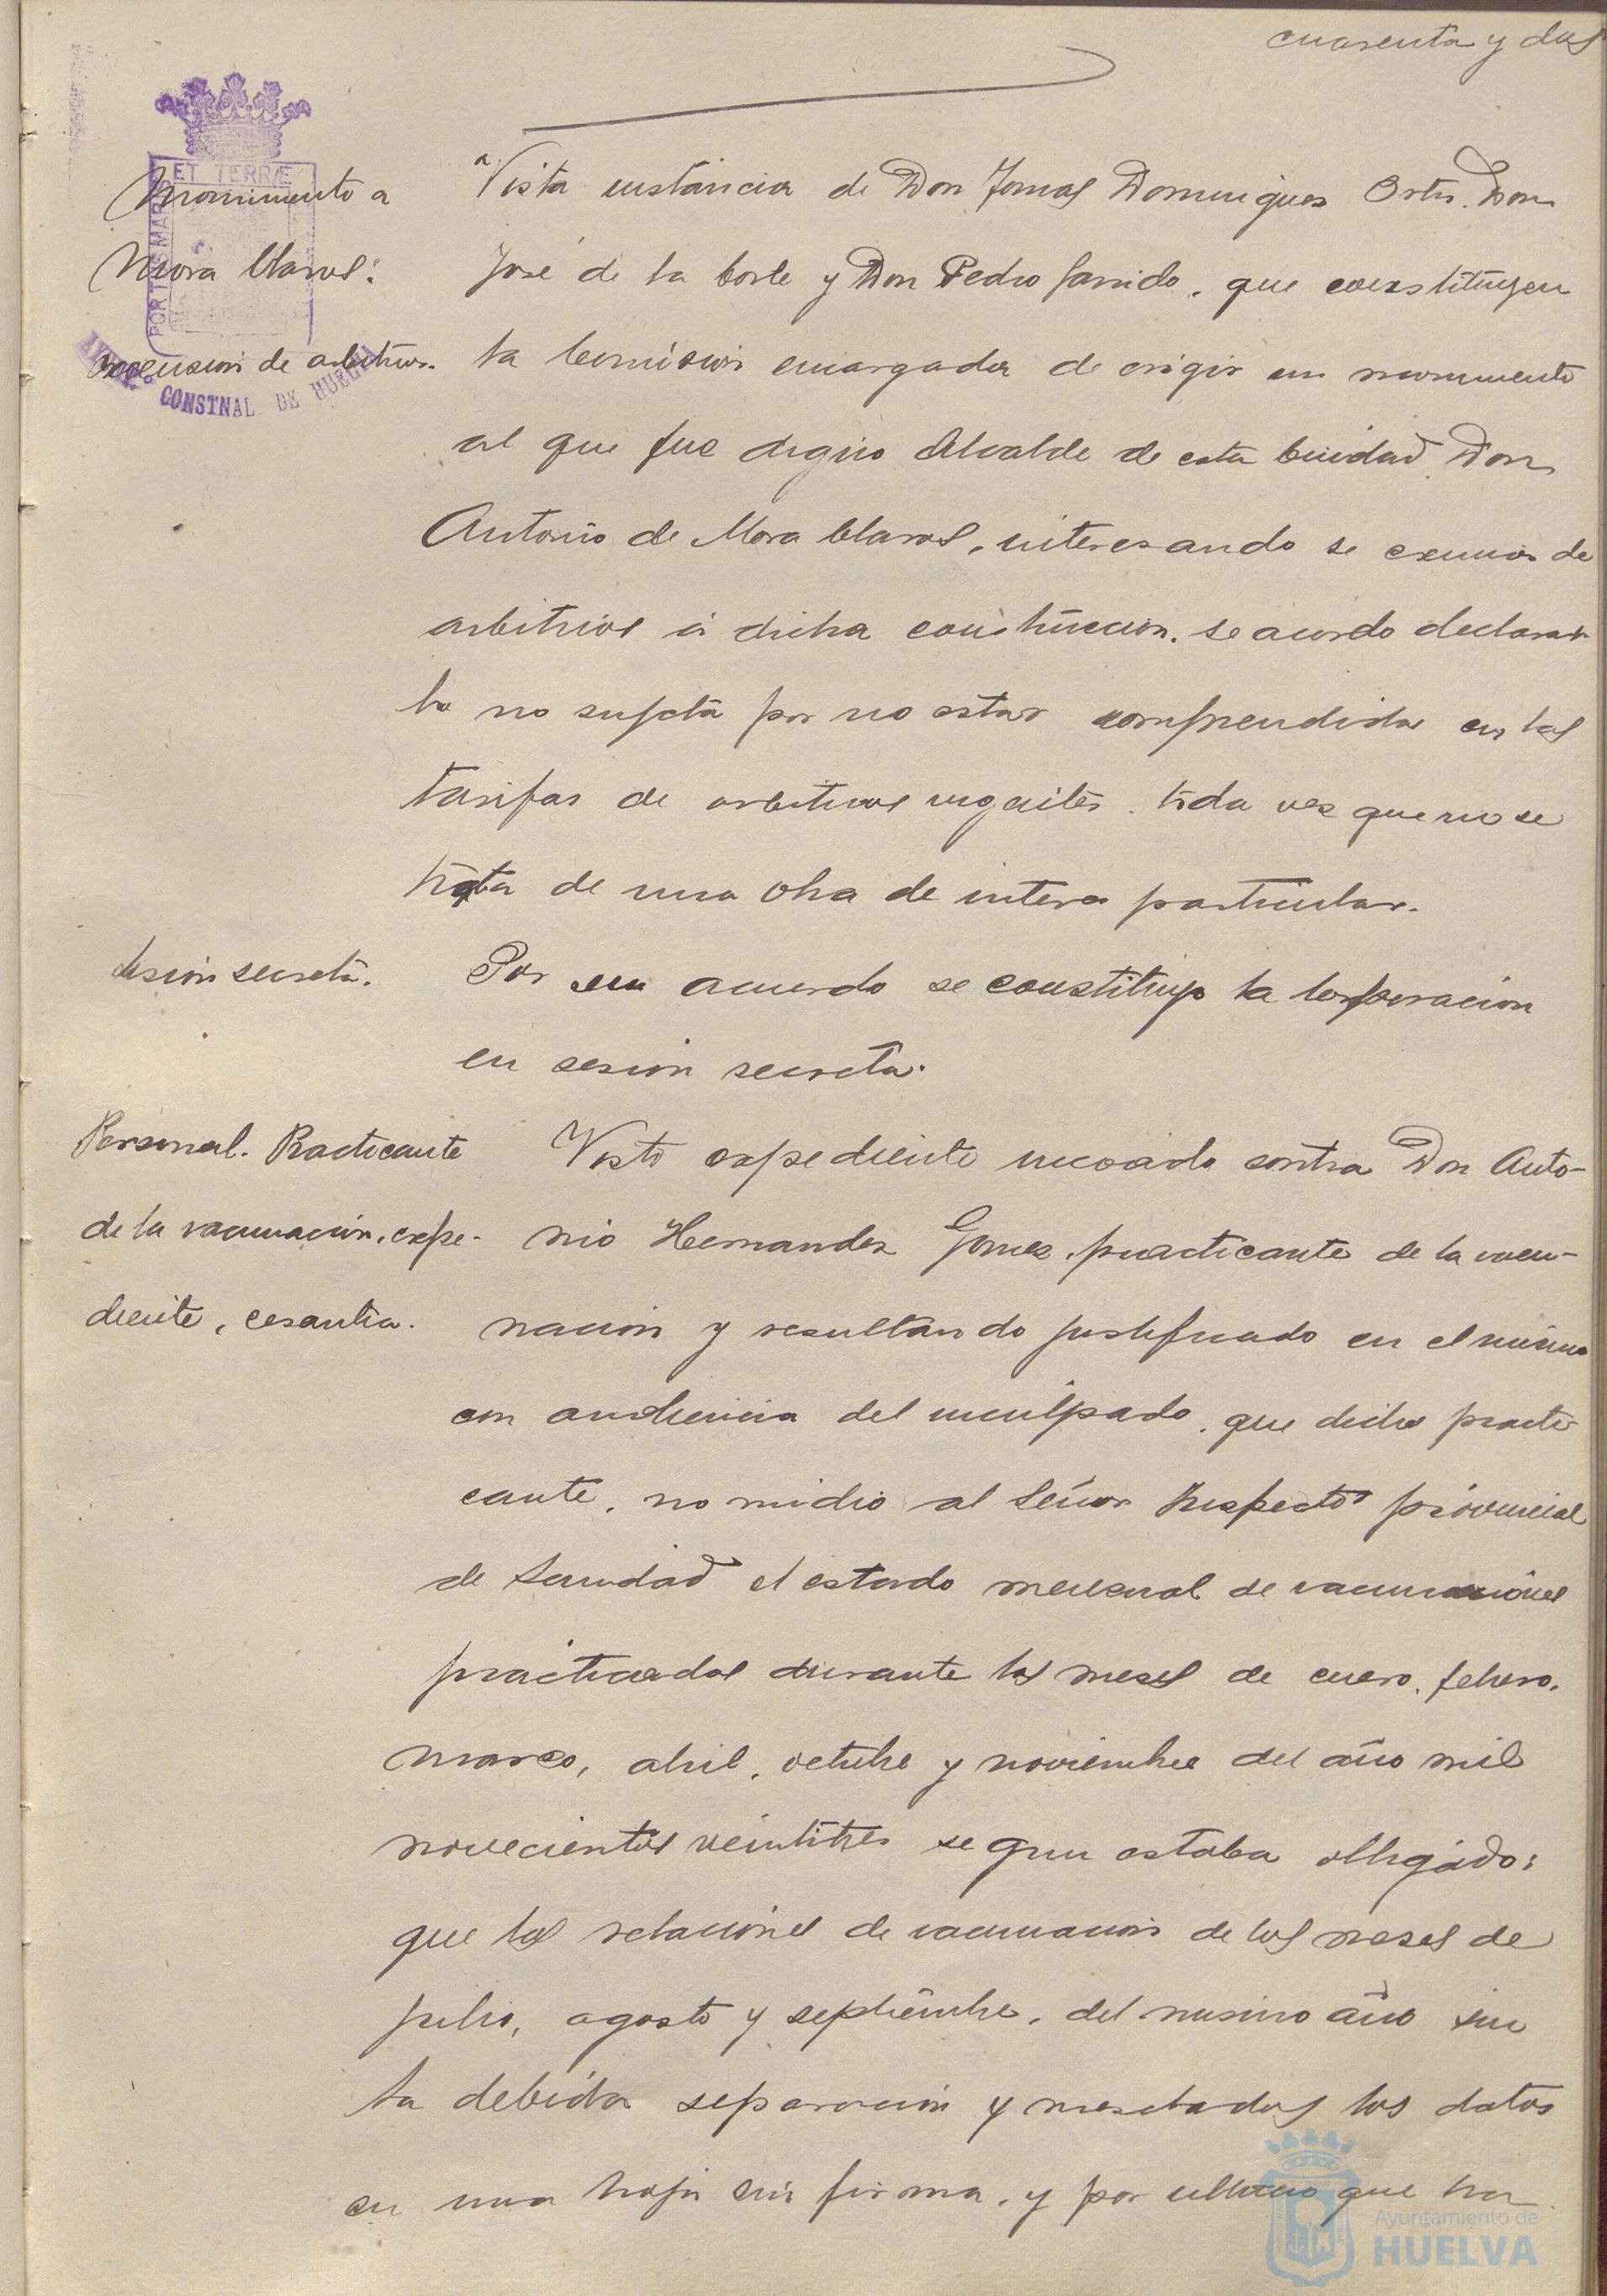 cuarenta y dos
Monumento a
Mora Claros:
excension de arbitrios.
ET TERRÆ
POR TUS MARIS
AYUNT.º CONSTNAL DE HUELVA
Vista instancia de Don Tomas Dominguez Ortiz. Don
José de la Corte y Don Pedro Garrido, que constituyen
la Comision encargada de erigir un monumento
al que fue digno Alcalde de esta Ciudad Don
Antonio de Mora Claros, interesando se exima de
arbitrios a dicha construccion. se acordo declarar
la no sujeta por no estar comprendida en las
tarifas de arbitrios vigentes. toda vez que no se
trata de una obra de interes particular.
Sesion secreta.
Por su acuerdo se constituyo la Corporacion
en sesion secreta.
Personal. Practicante
de la vacunacion, expe-
diente, cesantia.
Visto expediente incoado contra Don Anto-
nio Hernandez Gomez, practicante de la vacu-
nacion y resultando justificado en el mismo
con audiencia del inculpado, que dicho practi-
cante, no rindio al Señor Inspector provincial
de Sanidad el estado mensual de vacunaciones
practicadas durante los meses de enero, febrero,
marzo, abril, octubre y noviembre del año mil
novecientos veintitres segun estaba obligado:
que las relaciones de vacunacion de los meses de
julio, agosto y septiembre, del mismo año sin
la debida separacion y mezclados los datos
en una hoja sin firma, y por ultimo que ha
Ayuntamiento de
HUELVA